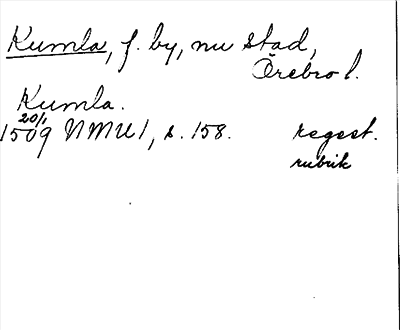 Kumla, f. by, nu stad,
Örebro l.
Kumla.
20/1
1509 NMU 1, s. 158. regest.
rubrik